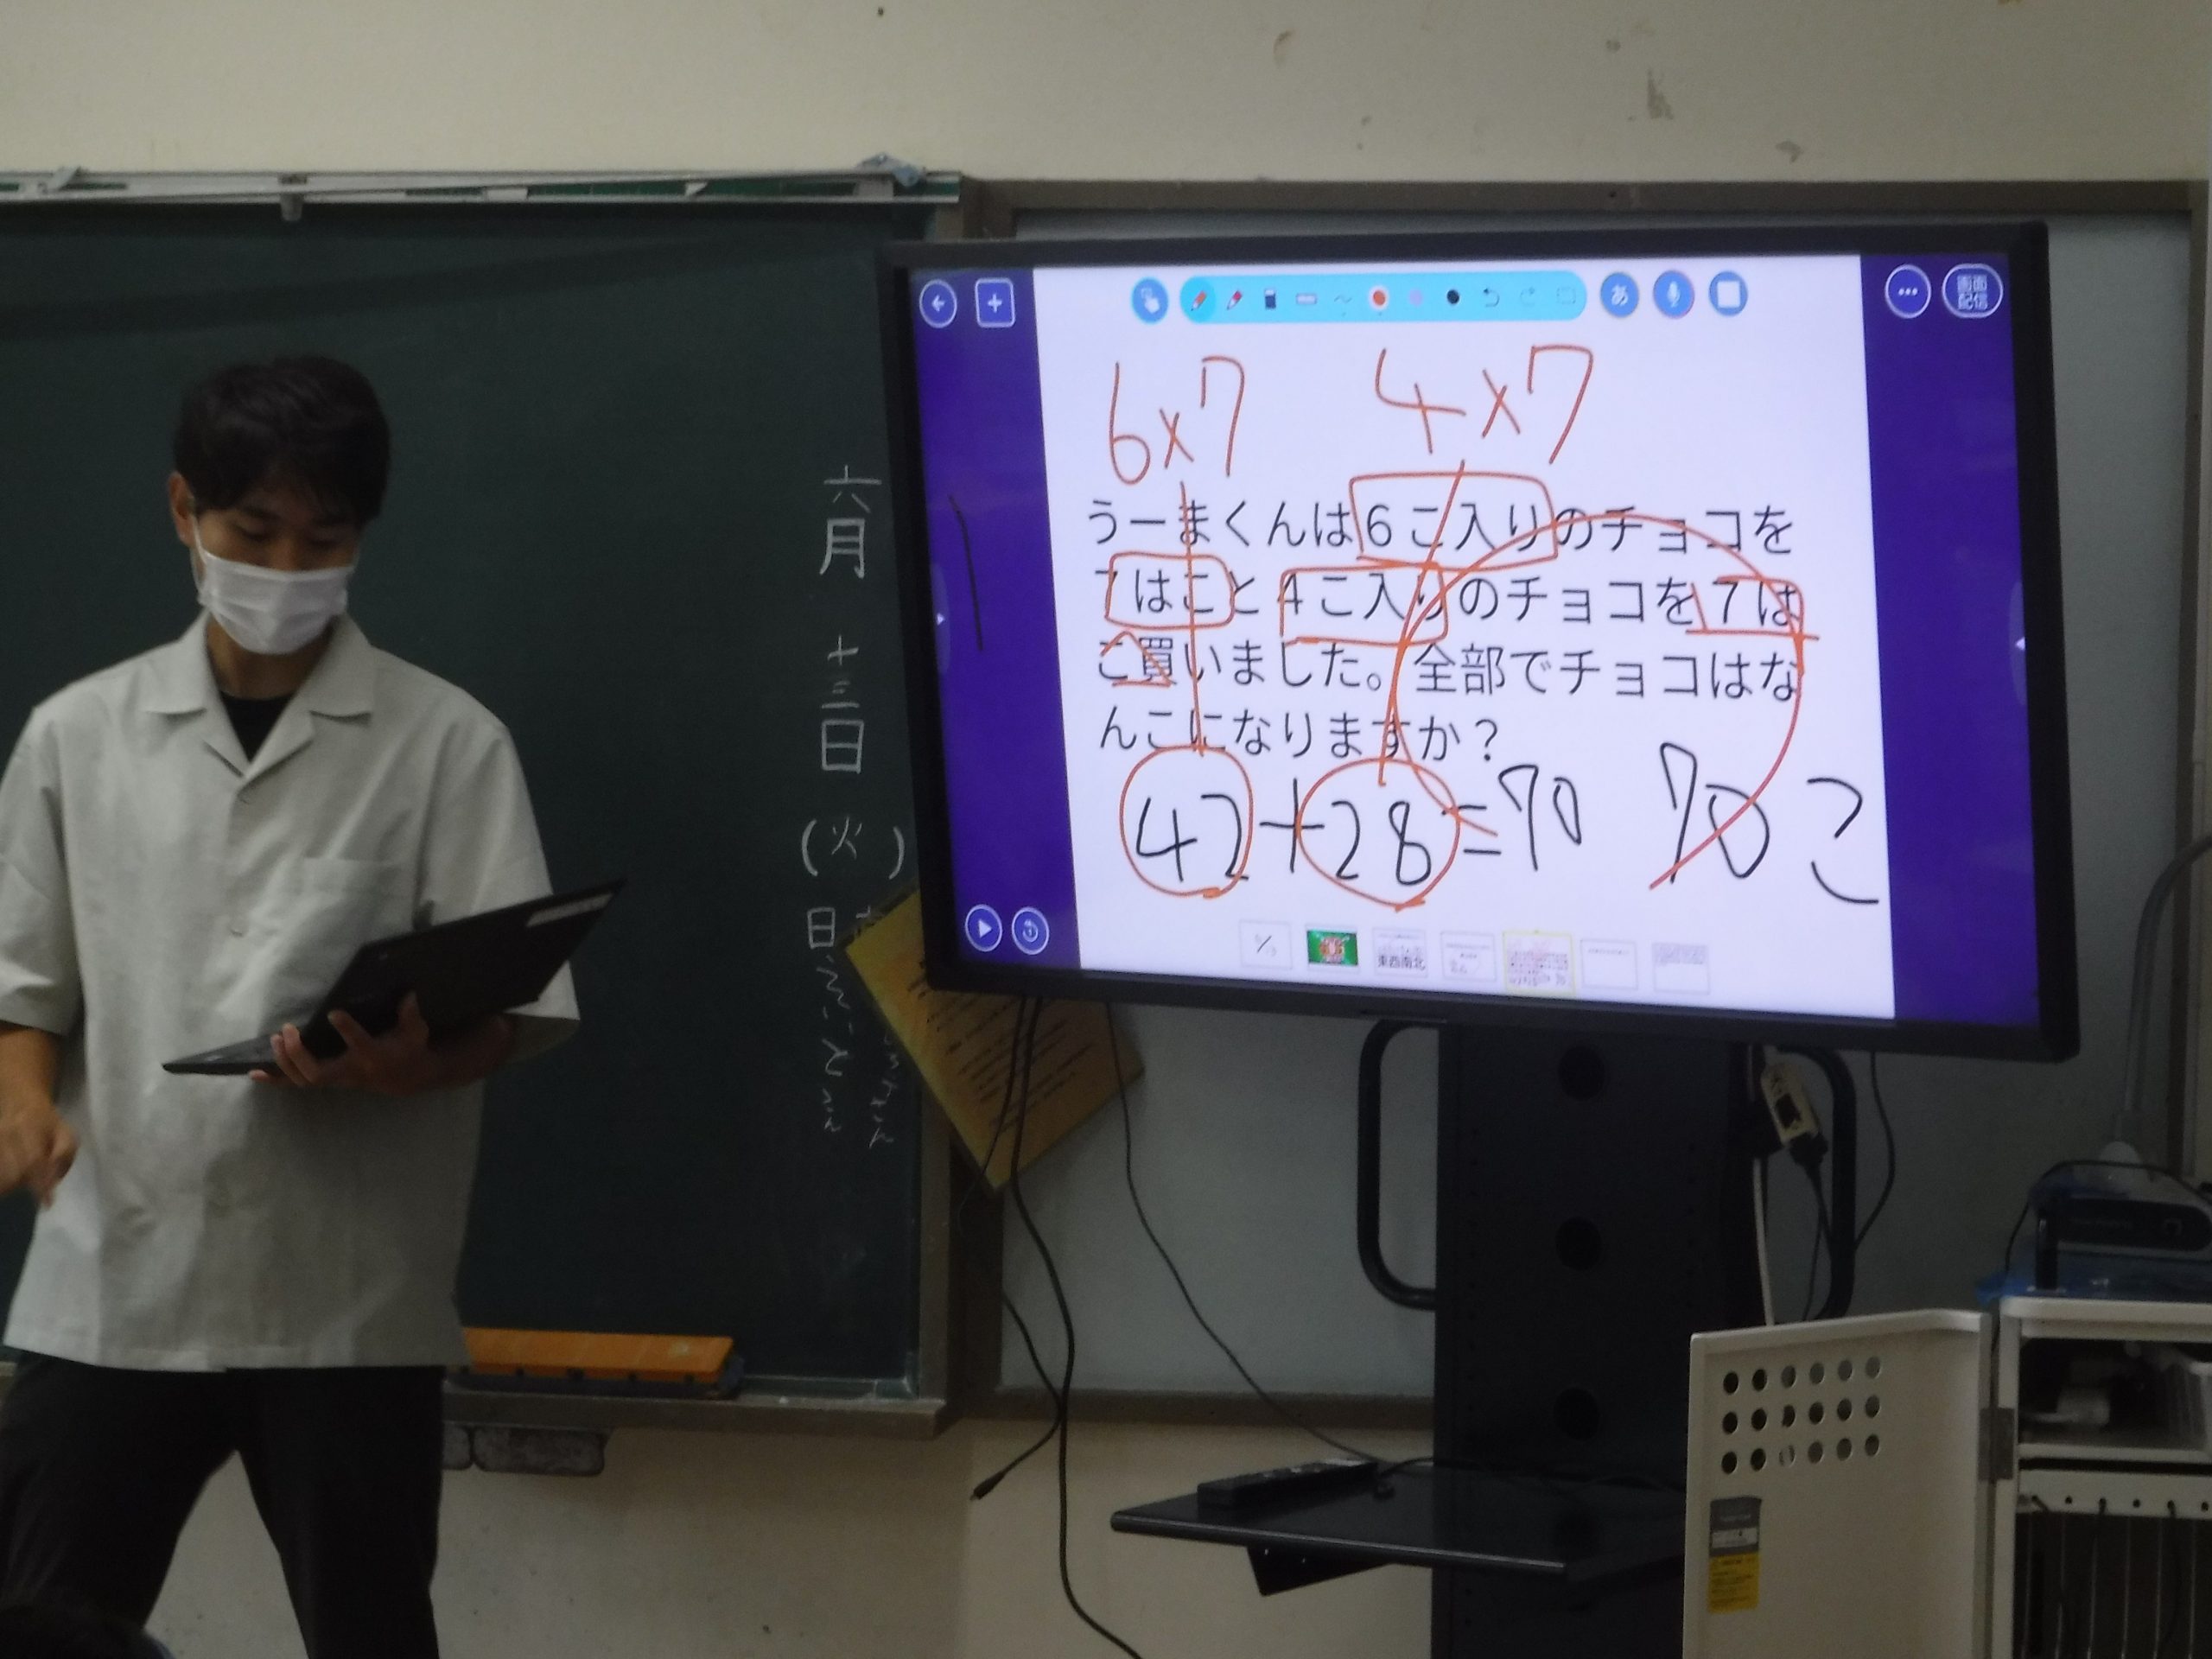 六月十三日(火)
あ
画面
配信
6×7
4×7
うーまくんは6こ入りのチョコを
7はこと4こ入りのチョコを7は
こ買いました。全部でチョコはな
んこになりますか？
42+28=70
70こ
東西南北